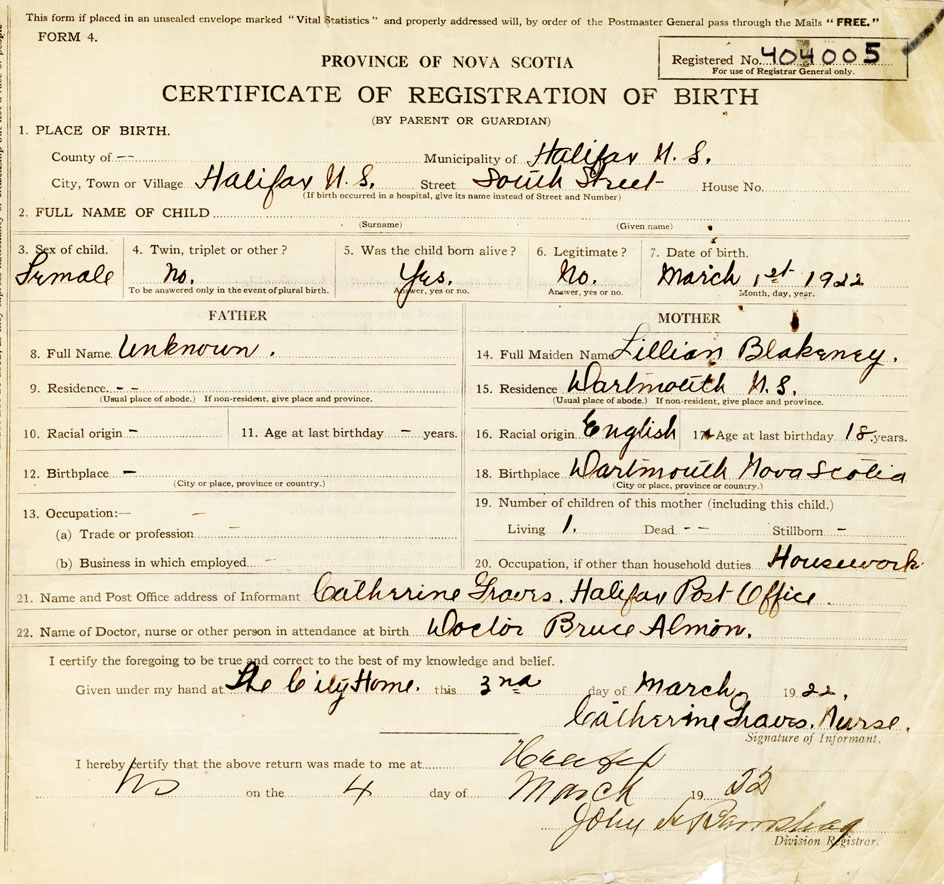 This form if placed in an unsealed envelope marked "Vital Statistics" and properly addressed will, by order of the Postmaster General pass through the Mails "FREE."
FORM 4.
Registered No. 404005
For use of Registrar General only.
PROVINCE OF NOVA SCOTIA
CERTIFICATE OF REGISTRATION OF BIRTH
(BY PARENT OR GUARDIAN)
1. PLACE OF BIRTH.
County of -- Municipality of Halifax N. S.
City, Town or Village Halifax N. S. Street South Street House No.
(If birth occurred in a hospital, give its name instead of Street and Number)
2. FULL NAME OF CHILD
(Surname) (Given name)
3. Sex of child. 4. Twin, triplet or other? 5. Was the child born alive? 6. Legitimate? 7. Date of birth.
Female No. Yes. No. March 1st 1922
To be answered only in the event of plural birth. Answer, yes or no. Answer, yes or no. Month, day, year.
FATHER MOTHER
8. Full Name Unknown. 14. Full Maiden Name Lillian Blakeney.
9. Residence. -- 15. Residence Dartmouth N. S.
(Usual place of abode.) If non-resident, give place and province. (Usual place of abode.) If non-resident, give place and province.
10. Racial origin - 11. Age at last birthday - years. 16. Racial origin English 17. Age at last birthday 18. years.
12. Birthplace - 18. Birthplace Dartmouth Nova Scotia
(City or place, province or country.) (City or place, province or country.)
13. Occupation:— - 19. Number of children of this mother (including this child.)
(a) Trade or profession - Living 1. Dead -- Stillborn -
(b) Business in which employed - 20. Occupation, if other than household duties Housework
21. Name and Post Office address of Informant Catherine Graves. Halifax Post Office.
22. Name of Doctor, nurse or other person in attendance at birth Doctor Bruce Almon.
I certify the foregoing to be true and correct to the best of my knowledge and belief.
Given under my hand at The City Home. this 3nd day of March 1922.
Catherine Graves. Nurse.
Signature of Informant.
I hereby certify that the above return was made to me at Halifax
NS on the 4 day of March 1922
John
Division Registrar.